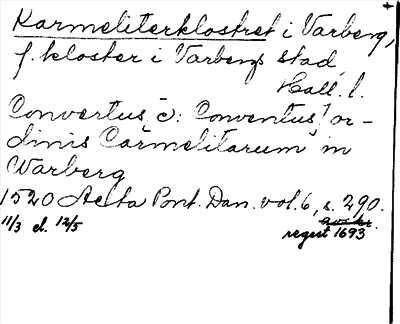 Karmeliterklostret i Varberg,
f. kloster i Varbergs stad,
Hall. l.
Convertus, ɔ: Conventus! or-
dinis Carmelitarum in
Warberg
1520 Acta Pont. Dan. vol. 6, s. 290.
11/3 el. 12/5
regest 1693